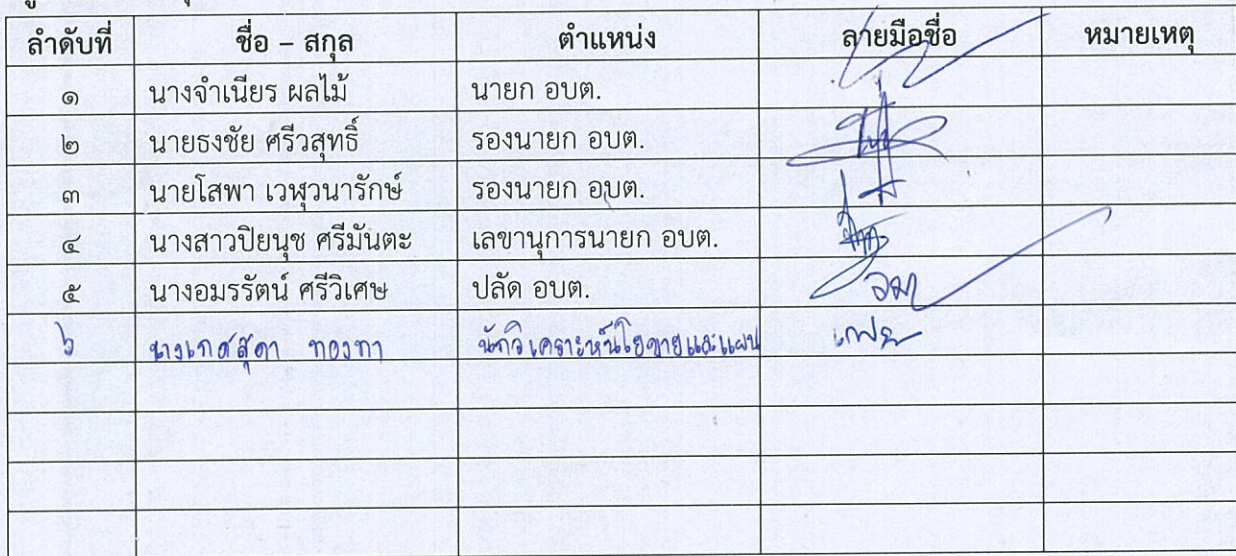 ลำดับที่ ชื่อ – สกุล ตำแหน่ง ลายมือชื่อ หมายเหตุ
๑ นางจำเนียร ผลไม้ นายก อบต.
๒ นายธงชัย ศรีวสุทธิ์ รองนายก อบต.
๓ นายโสพา เวฬุวนารักษ์ รองนายก อบต.
๔ นางสาวปิยนุช ศรีมันตะ เลขานุการนายก อบต.
๕ นางอมรรัตน์ ศรีวิเศษ ปลัด อบต.
๖ นางเกศสุดา ทองทา นักวิเคราะห์นโยบายและแผน